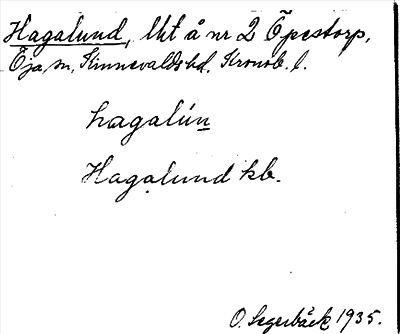 Hagalund, lht å nr 2 Öpestorp,
Öja sn, Kinnevalds hd. Kronob. l.
hagalún
Hagalund kb.
O. Segerbäck 1935.